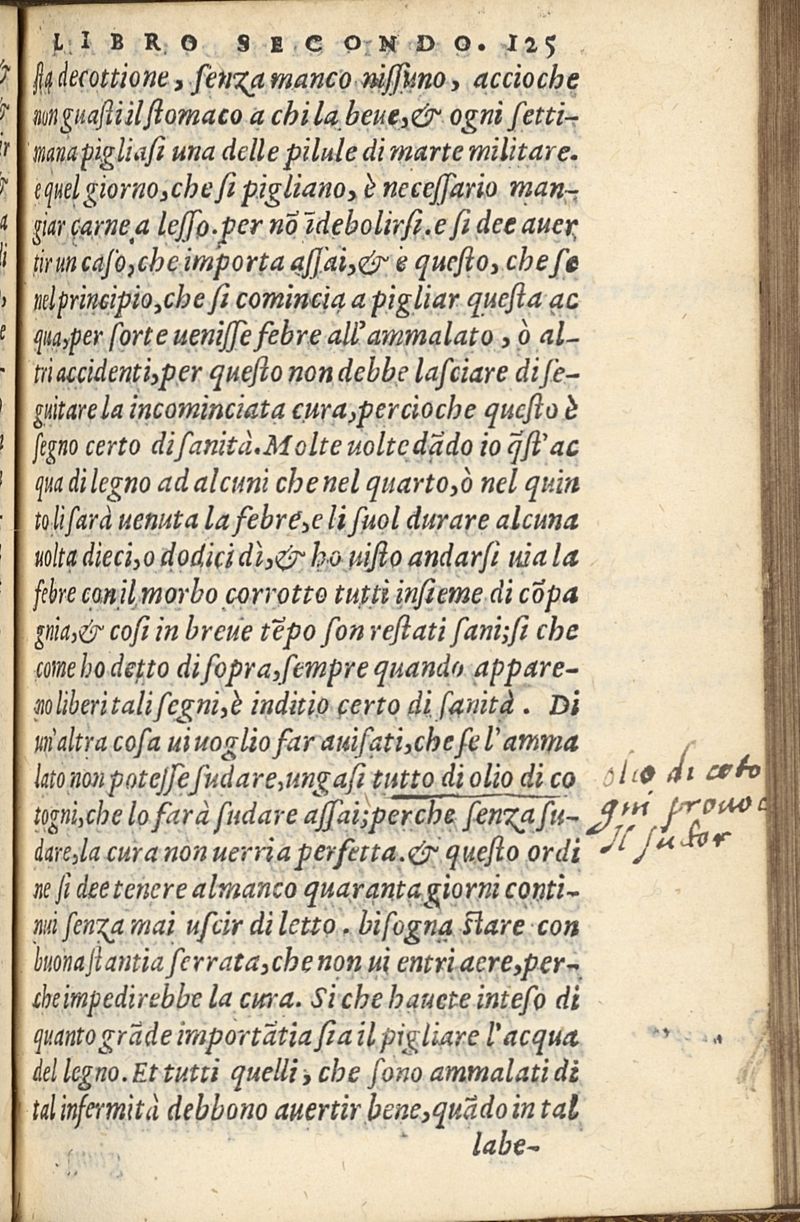 LIBRO SECONDO. 125
sta decottione, senza manco nissuno, accioche
non guasti il stomaco a chi la beue, & ogni setti-
mana pigliasi una delle pilule di marte militare.
e quel giorno, che si pigliano, è necessario man-
giar carne a lesso. per nō īdebolirsi. e si dee auer
tir un caso, che importa assai, & e questo, che se
nel principio, che si comincia a pigliar questa ac
qua, per sorte uenisse febre all'ammalato, ò al-
tri accidenti, per questo non debbe lasciare di se-
guitare la incominciata cura, percioche questo è
segno certo di sanità. Molte uolte dādo io q̄st'ac
qua di legno ad alcuni che nel quarto, ò nel quin
to li sarà uenuta la febre, e li suol durare alcuna
uolta dieci, o dodici dì, & ho uisto andarsi uia la
febre con il morbo corrotto tutti insieme di cōpa
gnia, & cosi in breue tēpo son restati sani; si che
come ho detto di sopra, sempre quando appare-
no liberi tali segni, è inditio certo di sanità. Di
un'altra cosa ui uoglio far auisati, che se l'amma
lato non potesse sudare, ungasi tutto di olio di co
togni, che lo farà sudare assai; perche senza su-
dare, la cura non uerria perfetta. & questo ordi
ne si dee tenere almanco quaranta giorni conti-
nui senza mai uscir di letto. bisogna stare con
buona stantia serrata, che non ui entri aere, per-
che impedirebbe la cura. Si che hauete inteso di
quanto grāde importātia sia il pigliare l'acqua
del legno. Et tutti quelli, che sono ammalati di
tal infermità debbono auertir bene, quādo in tal
labe-
olio di coto
gni prouoc
Il sudor